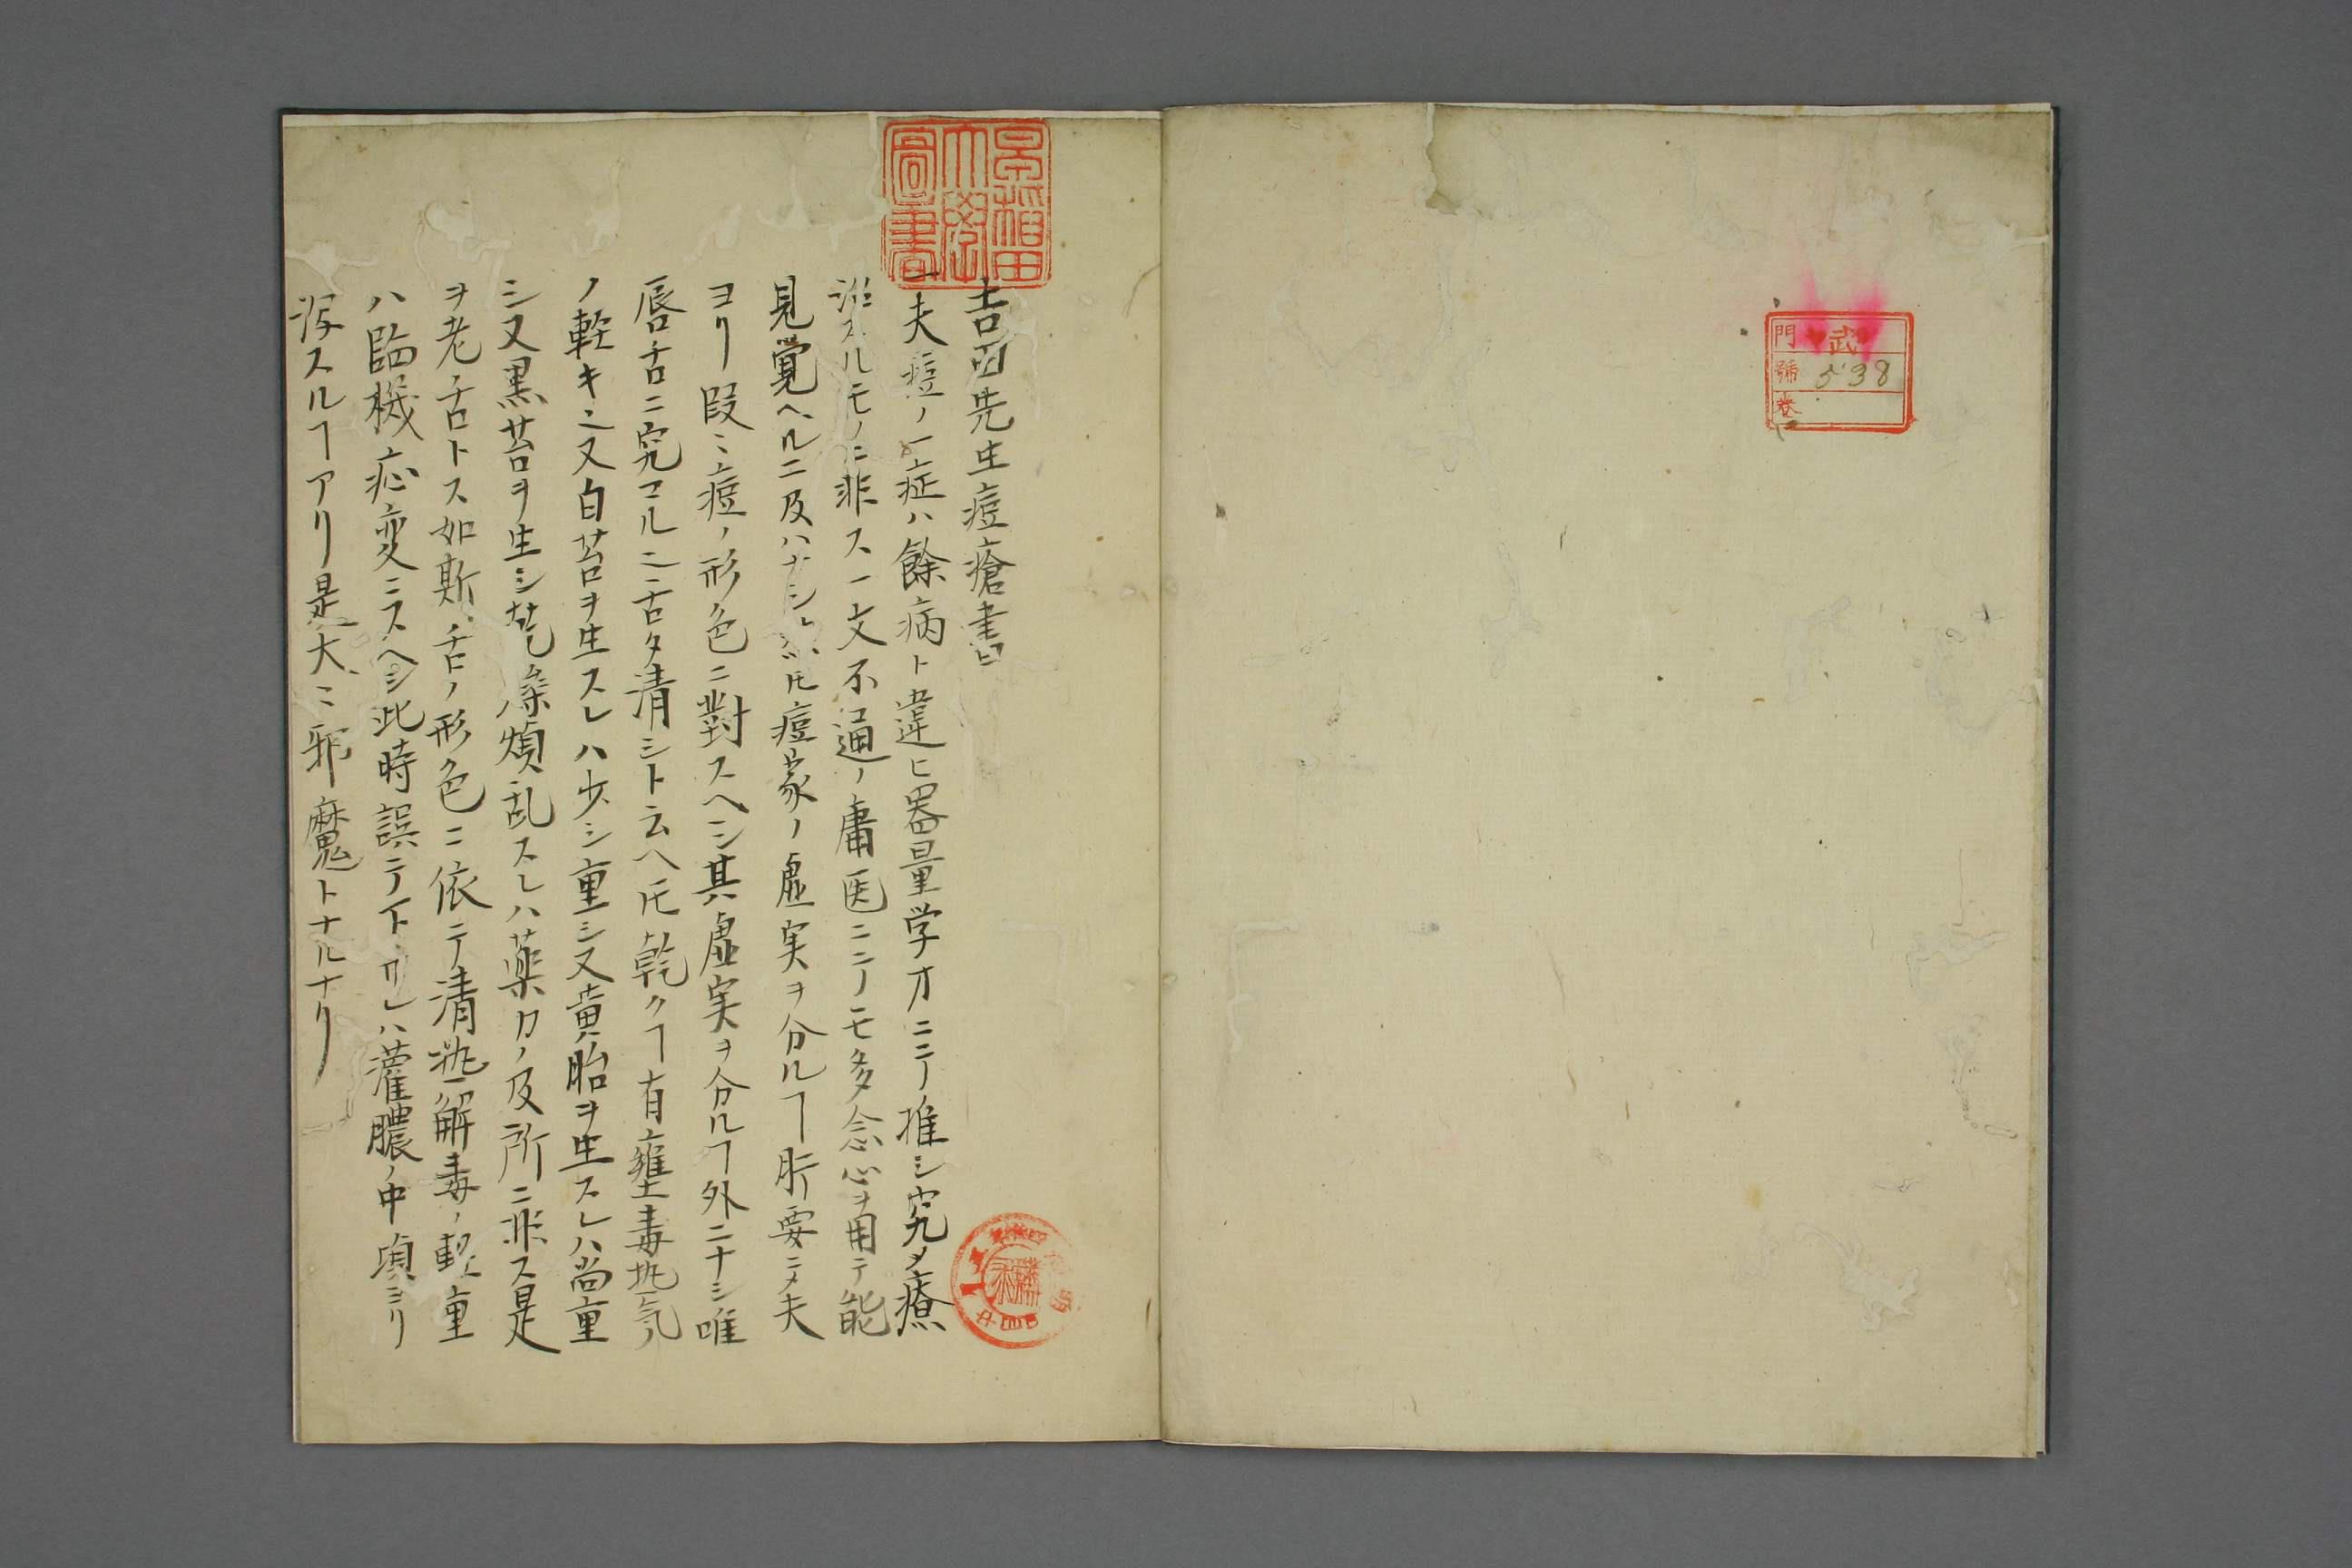 門 武
號 538
卷
早稲田大學圖書
吉田先生痘瘡書
一夫痘ノ一症ハ餘病ト違ヒ器量学才ニテ推シ究メ療
治スルモノニ非ス一文不通ノ庸医ニテモ多念心ヲ用テ能
見覚ヘルニ及ハナシ 𪜈痘家ノ虚実ヲ分ルヿ肝要ニメ夫
ヨリ段ミ痘ノ形色ニ對スヘシ其虚実ヲ分ルヿ外ニナシ唯
唇舌ニ究マル 古タ清シト云ヘ𪜈乾クヿ有壅毒热気
ノ軽キ 又白苔ヲ生スレハ少シ重シ又黄胎ヲ生スレハ尚重
シ又黒苔ヲ生シ乾燥煩乱スレハ薬力ノ及所ニ非ス是
ヲ老舌トス如斯舌ノ形色ニ依テ清热解毒ノ軽重
ハ臨機応変ニスヘシ此時誤テ下 レハ灌膿ノ中項ヨリ
瀉スルヿアリ是大ニ邪魔トナルナリ